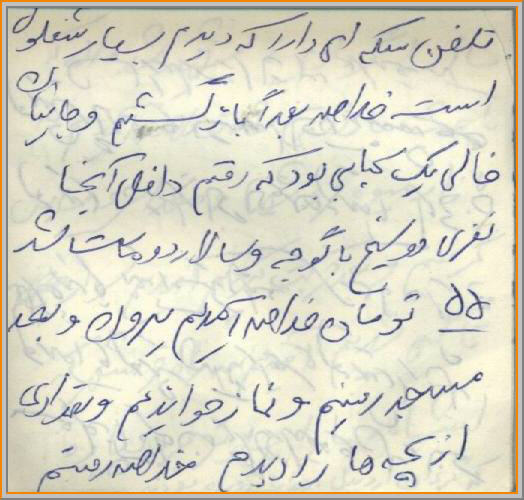 تلفن سکه ای دارد که دیدم بسیار شغلوک
است خلاصه بعداً بازگشتیم وجایتان
خالی یک کبابی بود که رفتم داخل آنجا
نفری دو سیخ با گوجه وسالاد دو ماست شد
۵۵ تومان خلاصه آمدیم بیرون و بعد
مسجد رفتیم و نماز خواندیم و تعدادی
از بچه ها را دیدم خلاصه رفتم